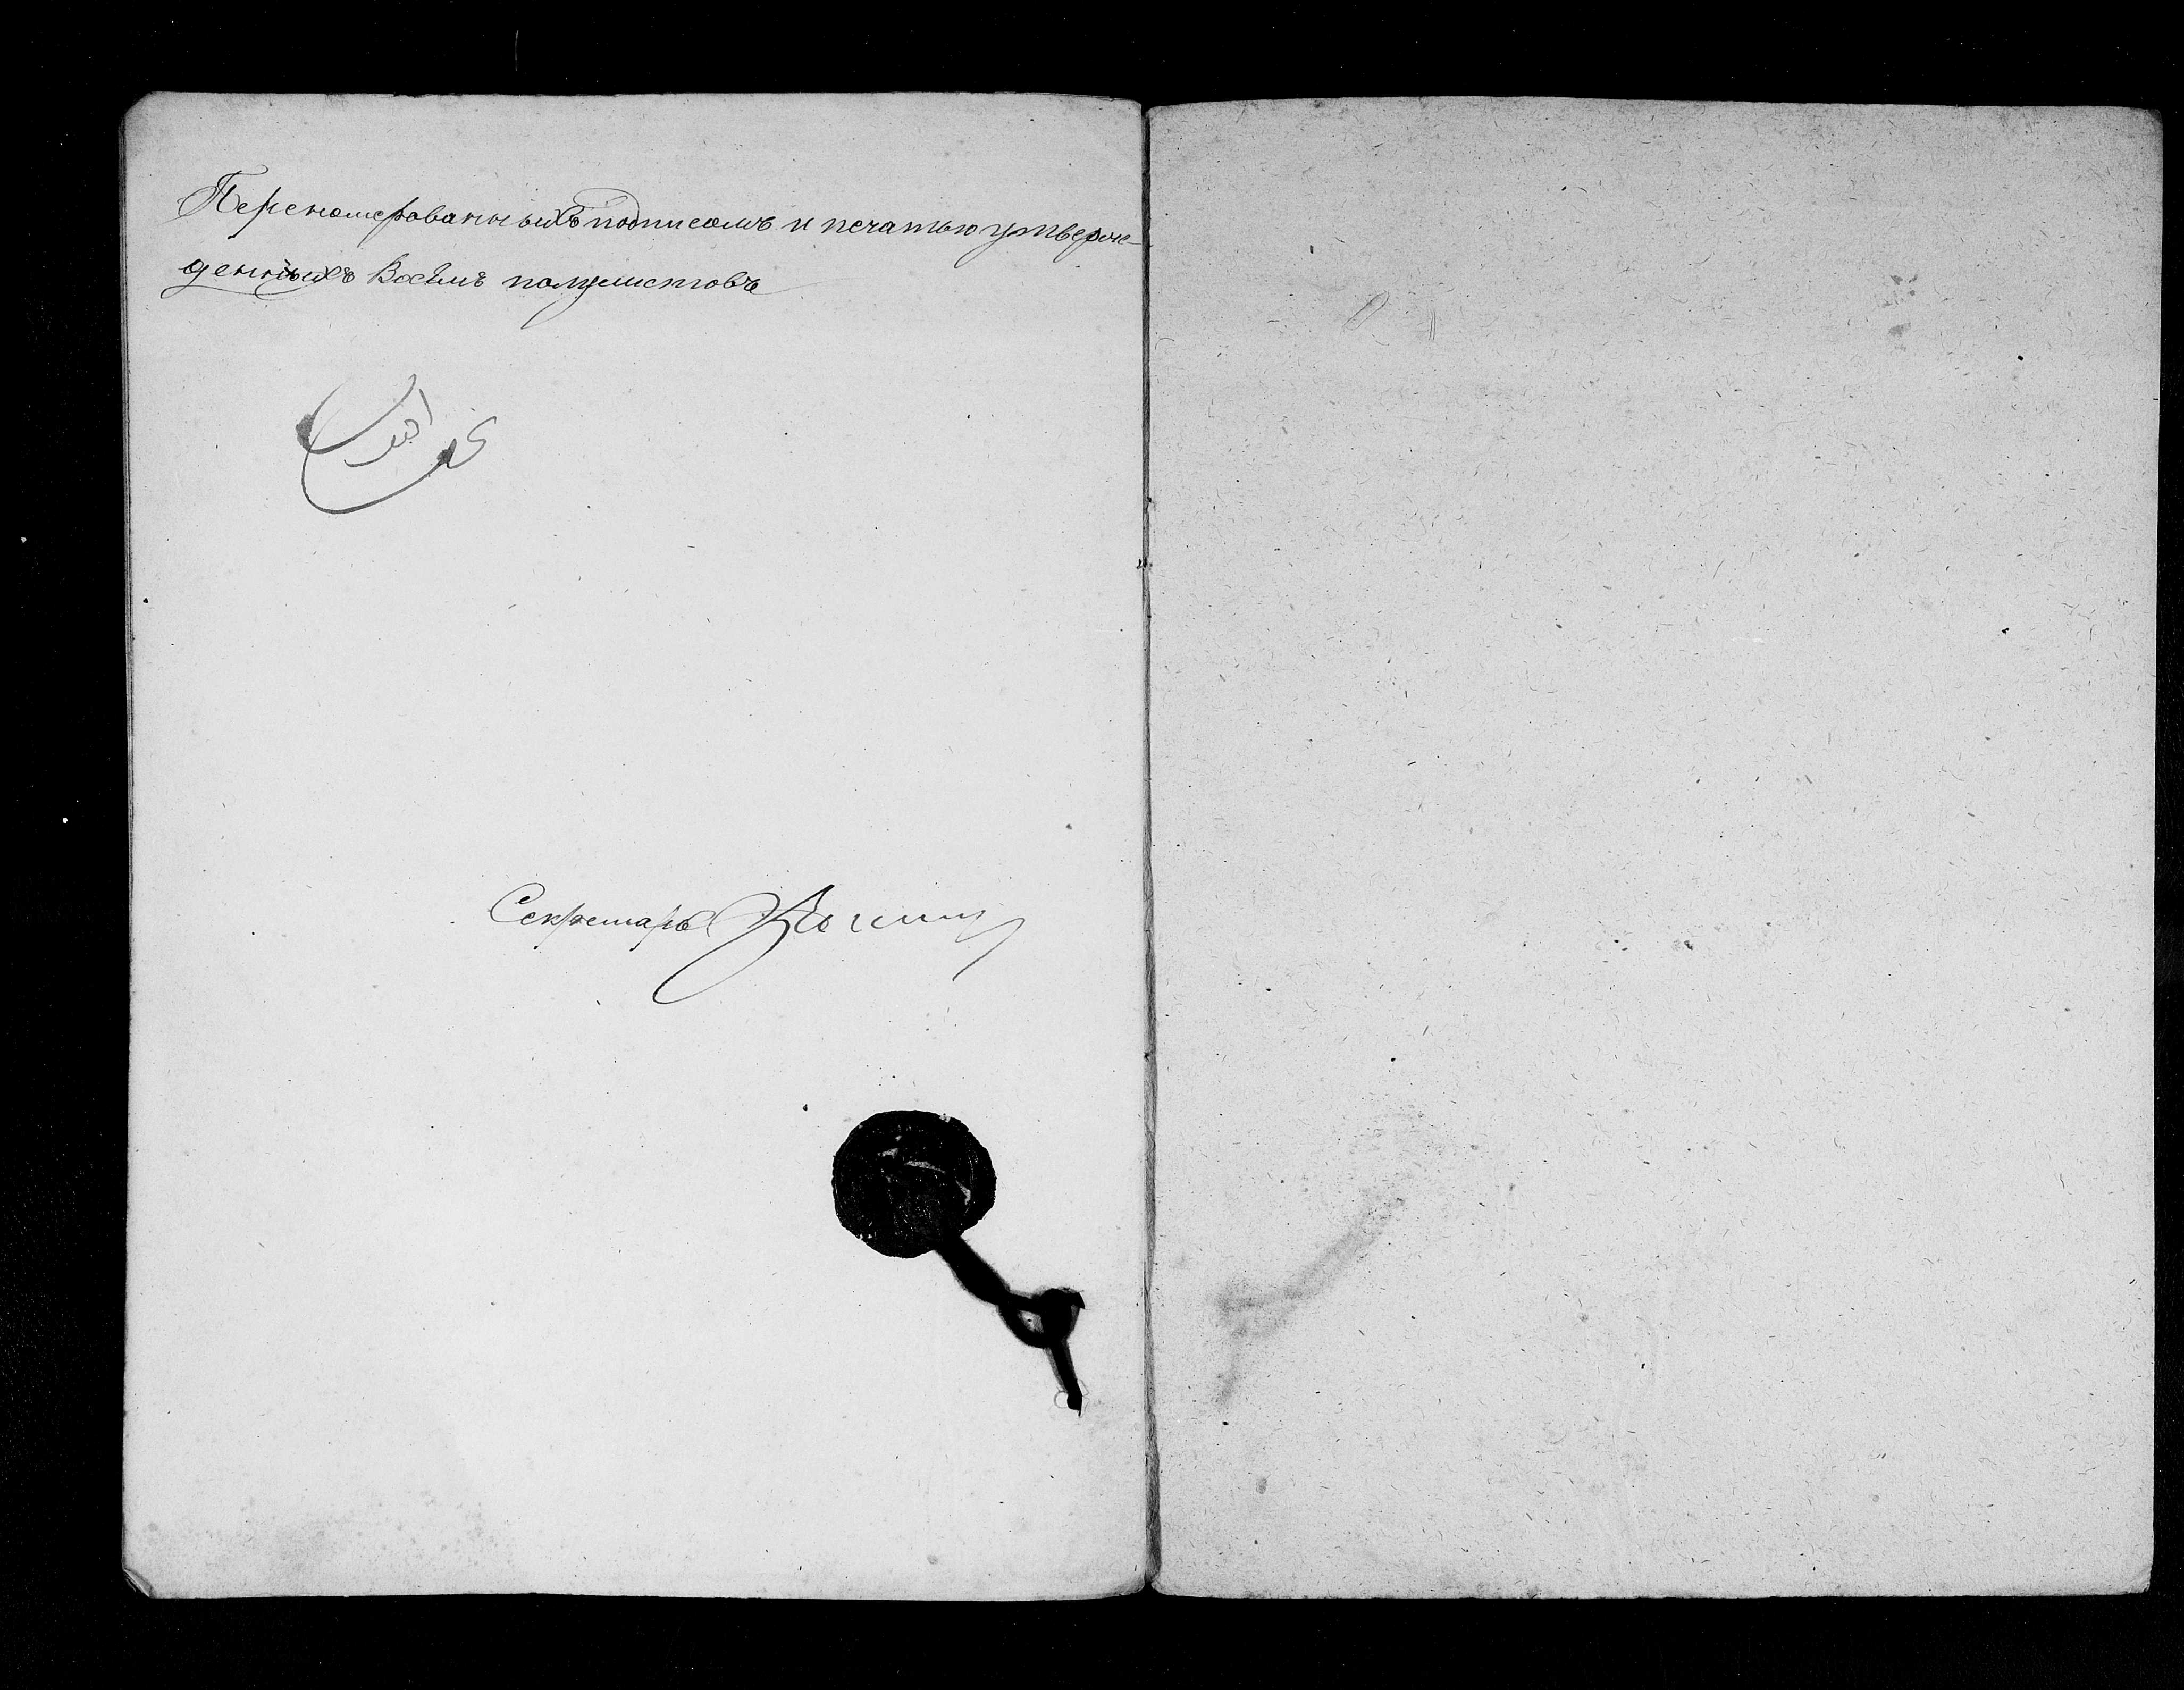 Переномерованныхъ подписомъ и печатью утверж-
денныхъ Восѣмь полулистовъ
Секретарь